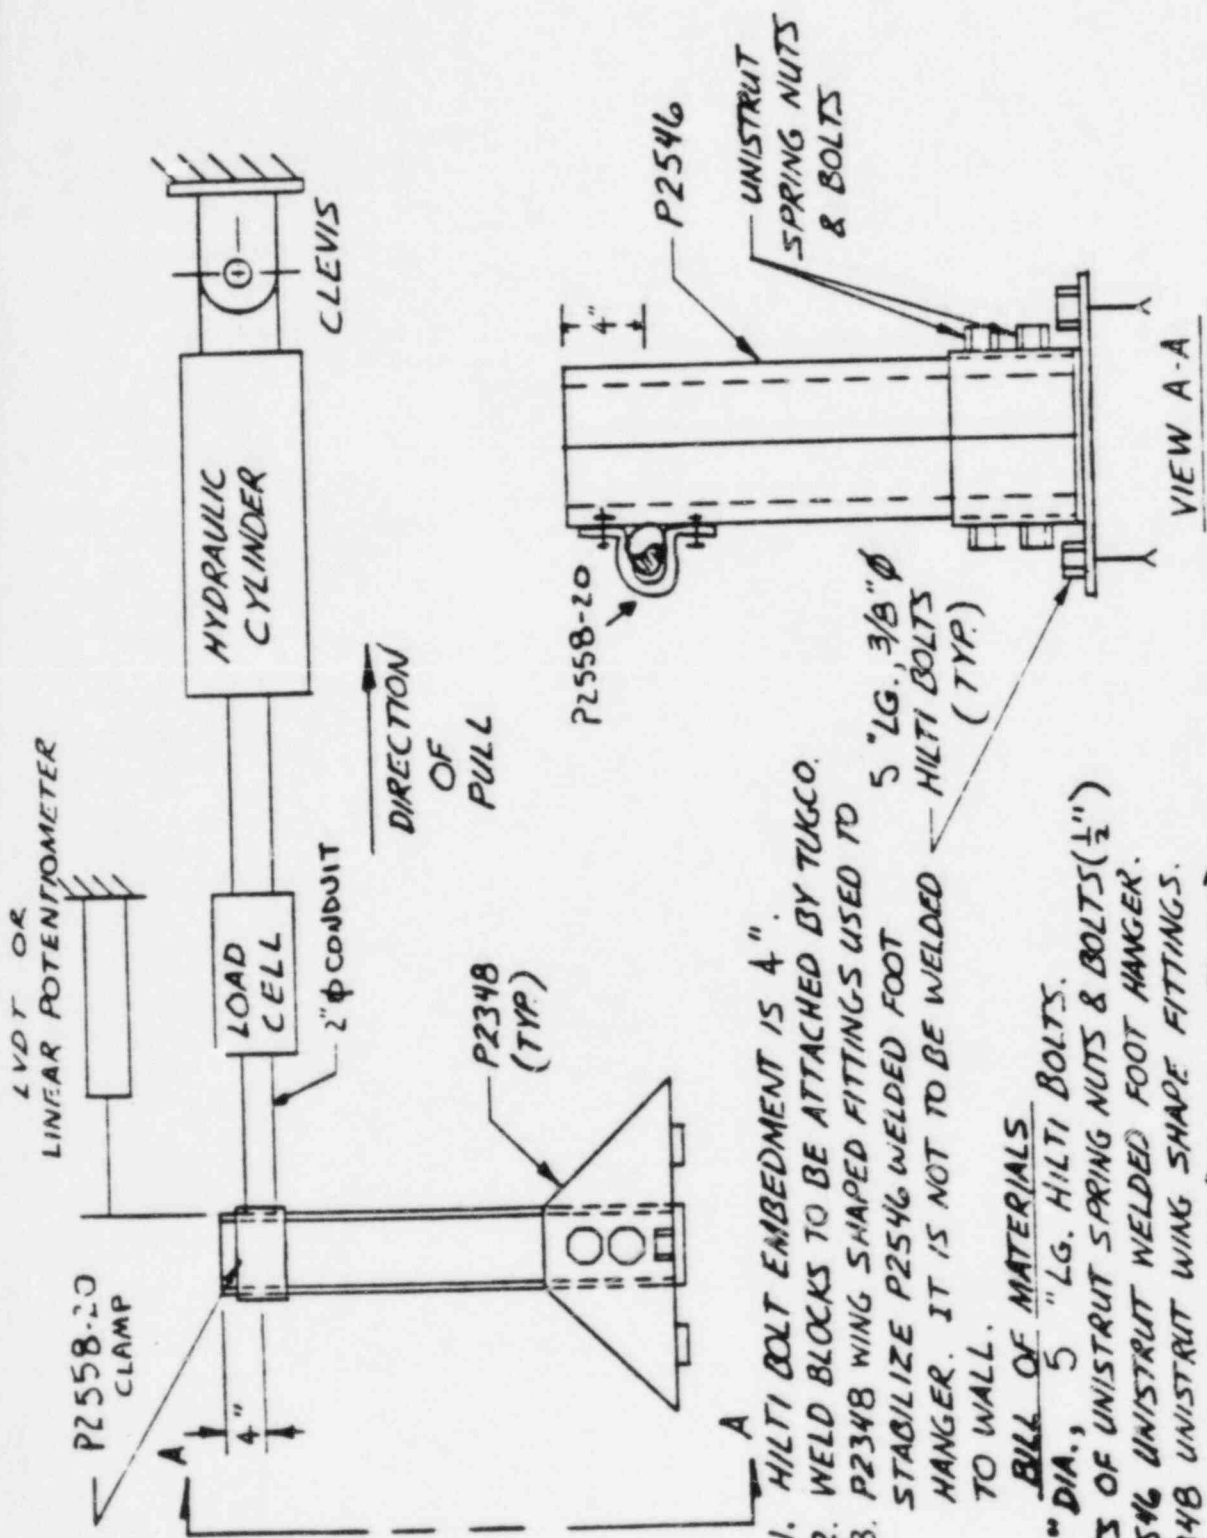 LVDT OR
LINEAR POTENTIOMETER
P2558-20
CLAMP
4"
A
A
LOAD
CELL
2"ϕ CONDUIT
HYDRAULIC
CYLINDER
CLEVIS
DIRECTION
OF
PULL
P2348
(TYP.)
P2558-20
4"
P2546
UNISTRUT
SPRING NUTS
& BOLTS
5 "LG., 3/8"Ø
HILTI BOLTS
(TYP.)
VIEW A-A
1. HILTI BOLT EMBEDMENT IS 4".
2. WELD BLOCKS TO BE ATTACHED BY TUGCO.
3. P2348 WING SHAPED FITTINGS USED TO
STABILIZE P2546 WELDED FOOT
HANGER. IT IS NOT TO BE WELDED
TO WALL.
BILL OF MATERIALS
" DIA., 5 "LG. HILTI BOLTS.
S OF UNISTRUT SPRING NUTS & BOLTS (1/2")
46 UNISTRUT WELDED FOOT HANGER.
48 UNISTRUT WING SHAPE FITTINGS.